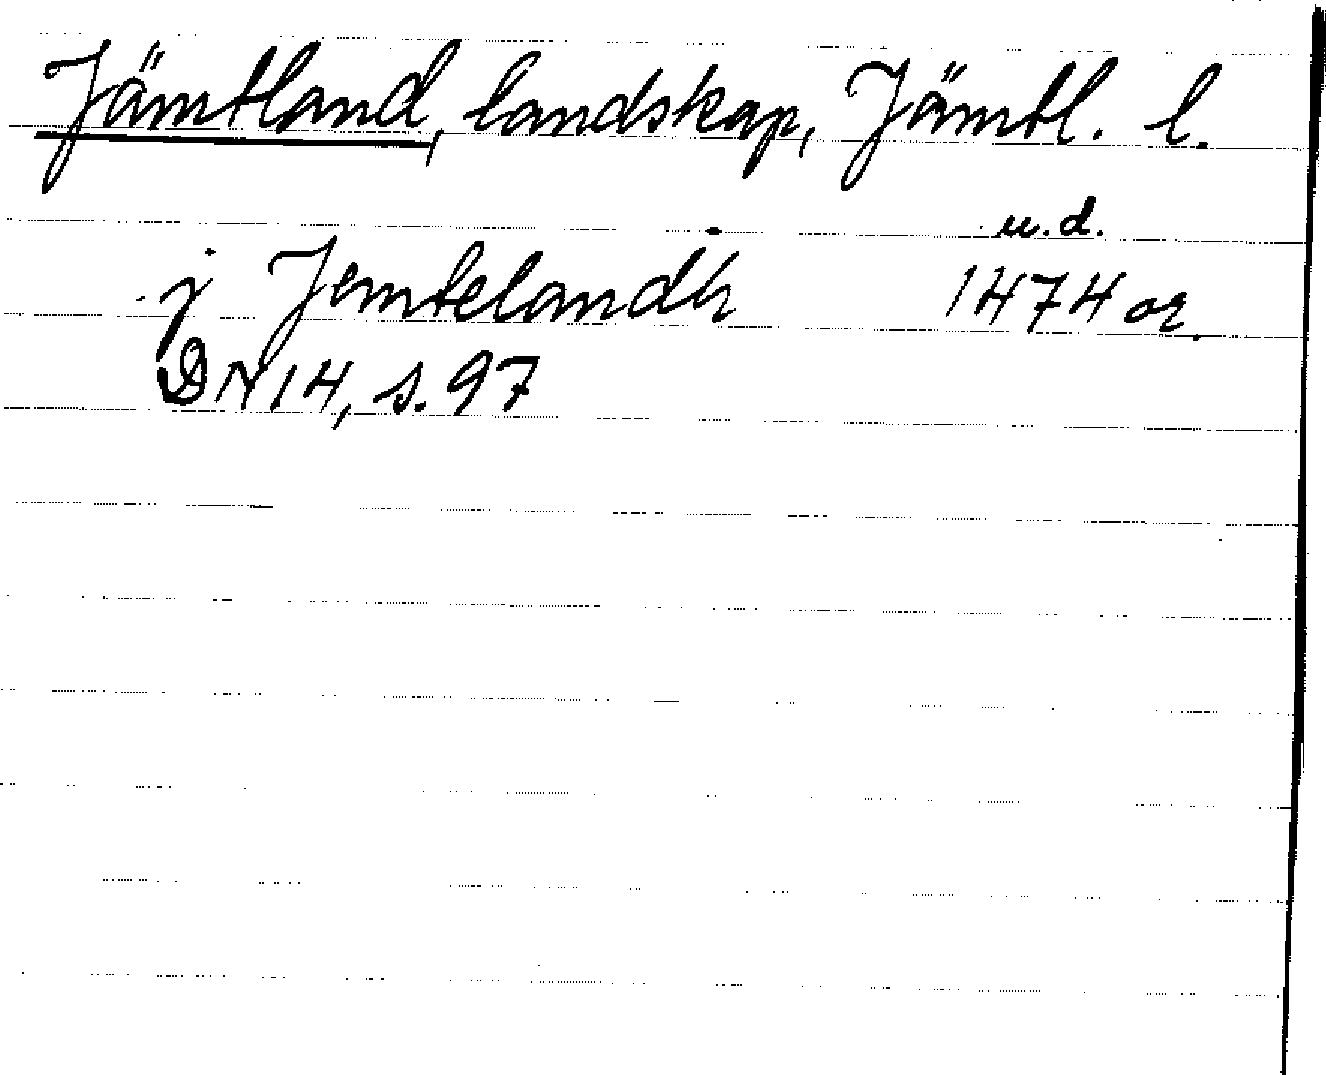 Jämtland, landskap, Jämtl. l.
u.d.
j Jemtelandh 1474 or.
DN 14, s. 97